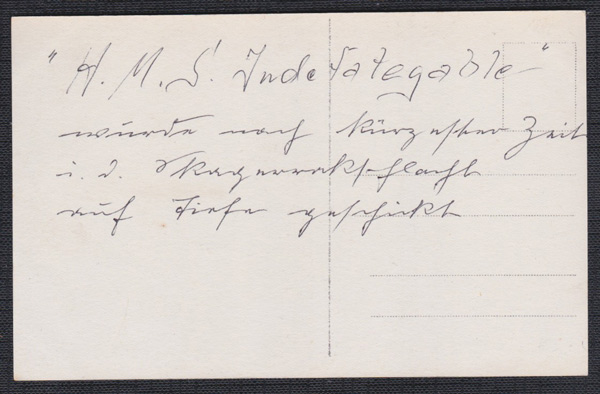 "H. M. S. Indefategable"
wurde nach kürzester Zeit
i. d. Skagerrakschlacht
auf Tiefe geschickt